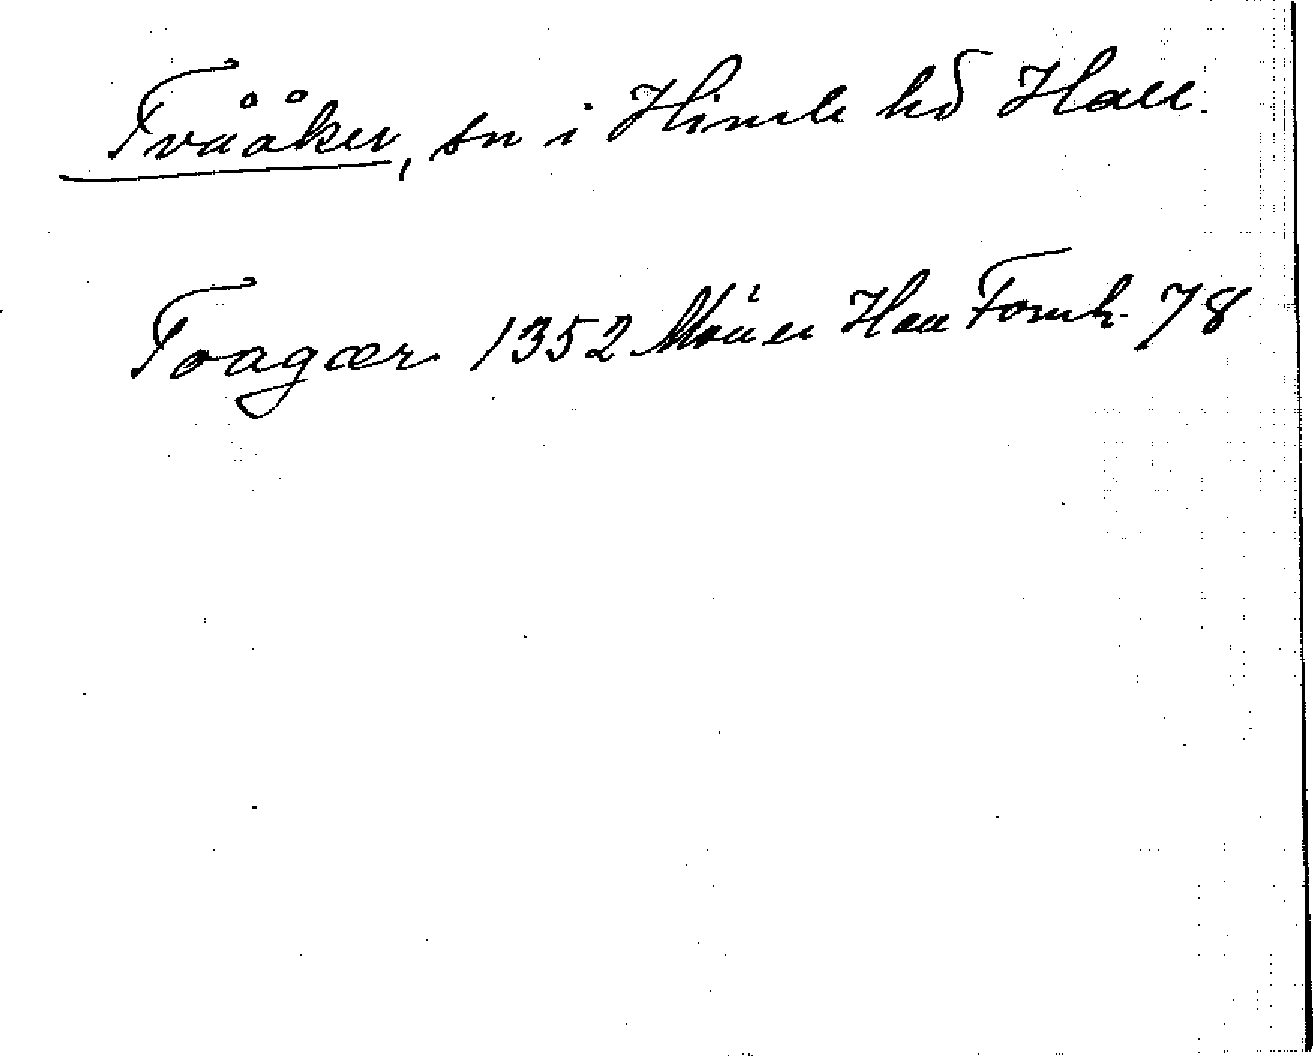 Tvååker, sn i Himle hd Hall.
Toagær 1352 Hall Fornh. 78